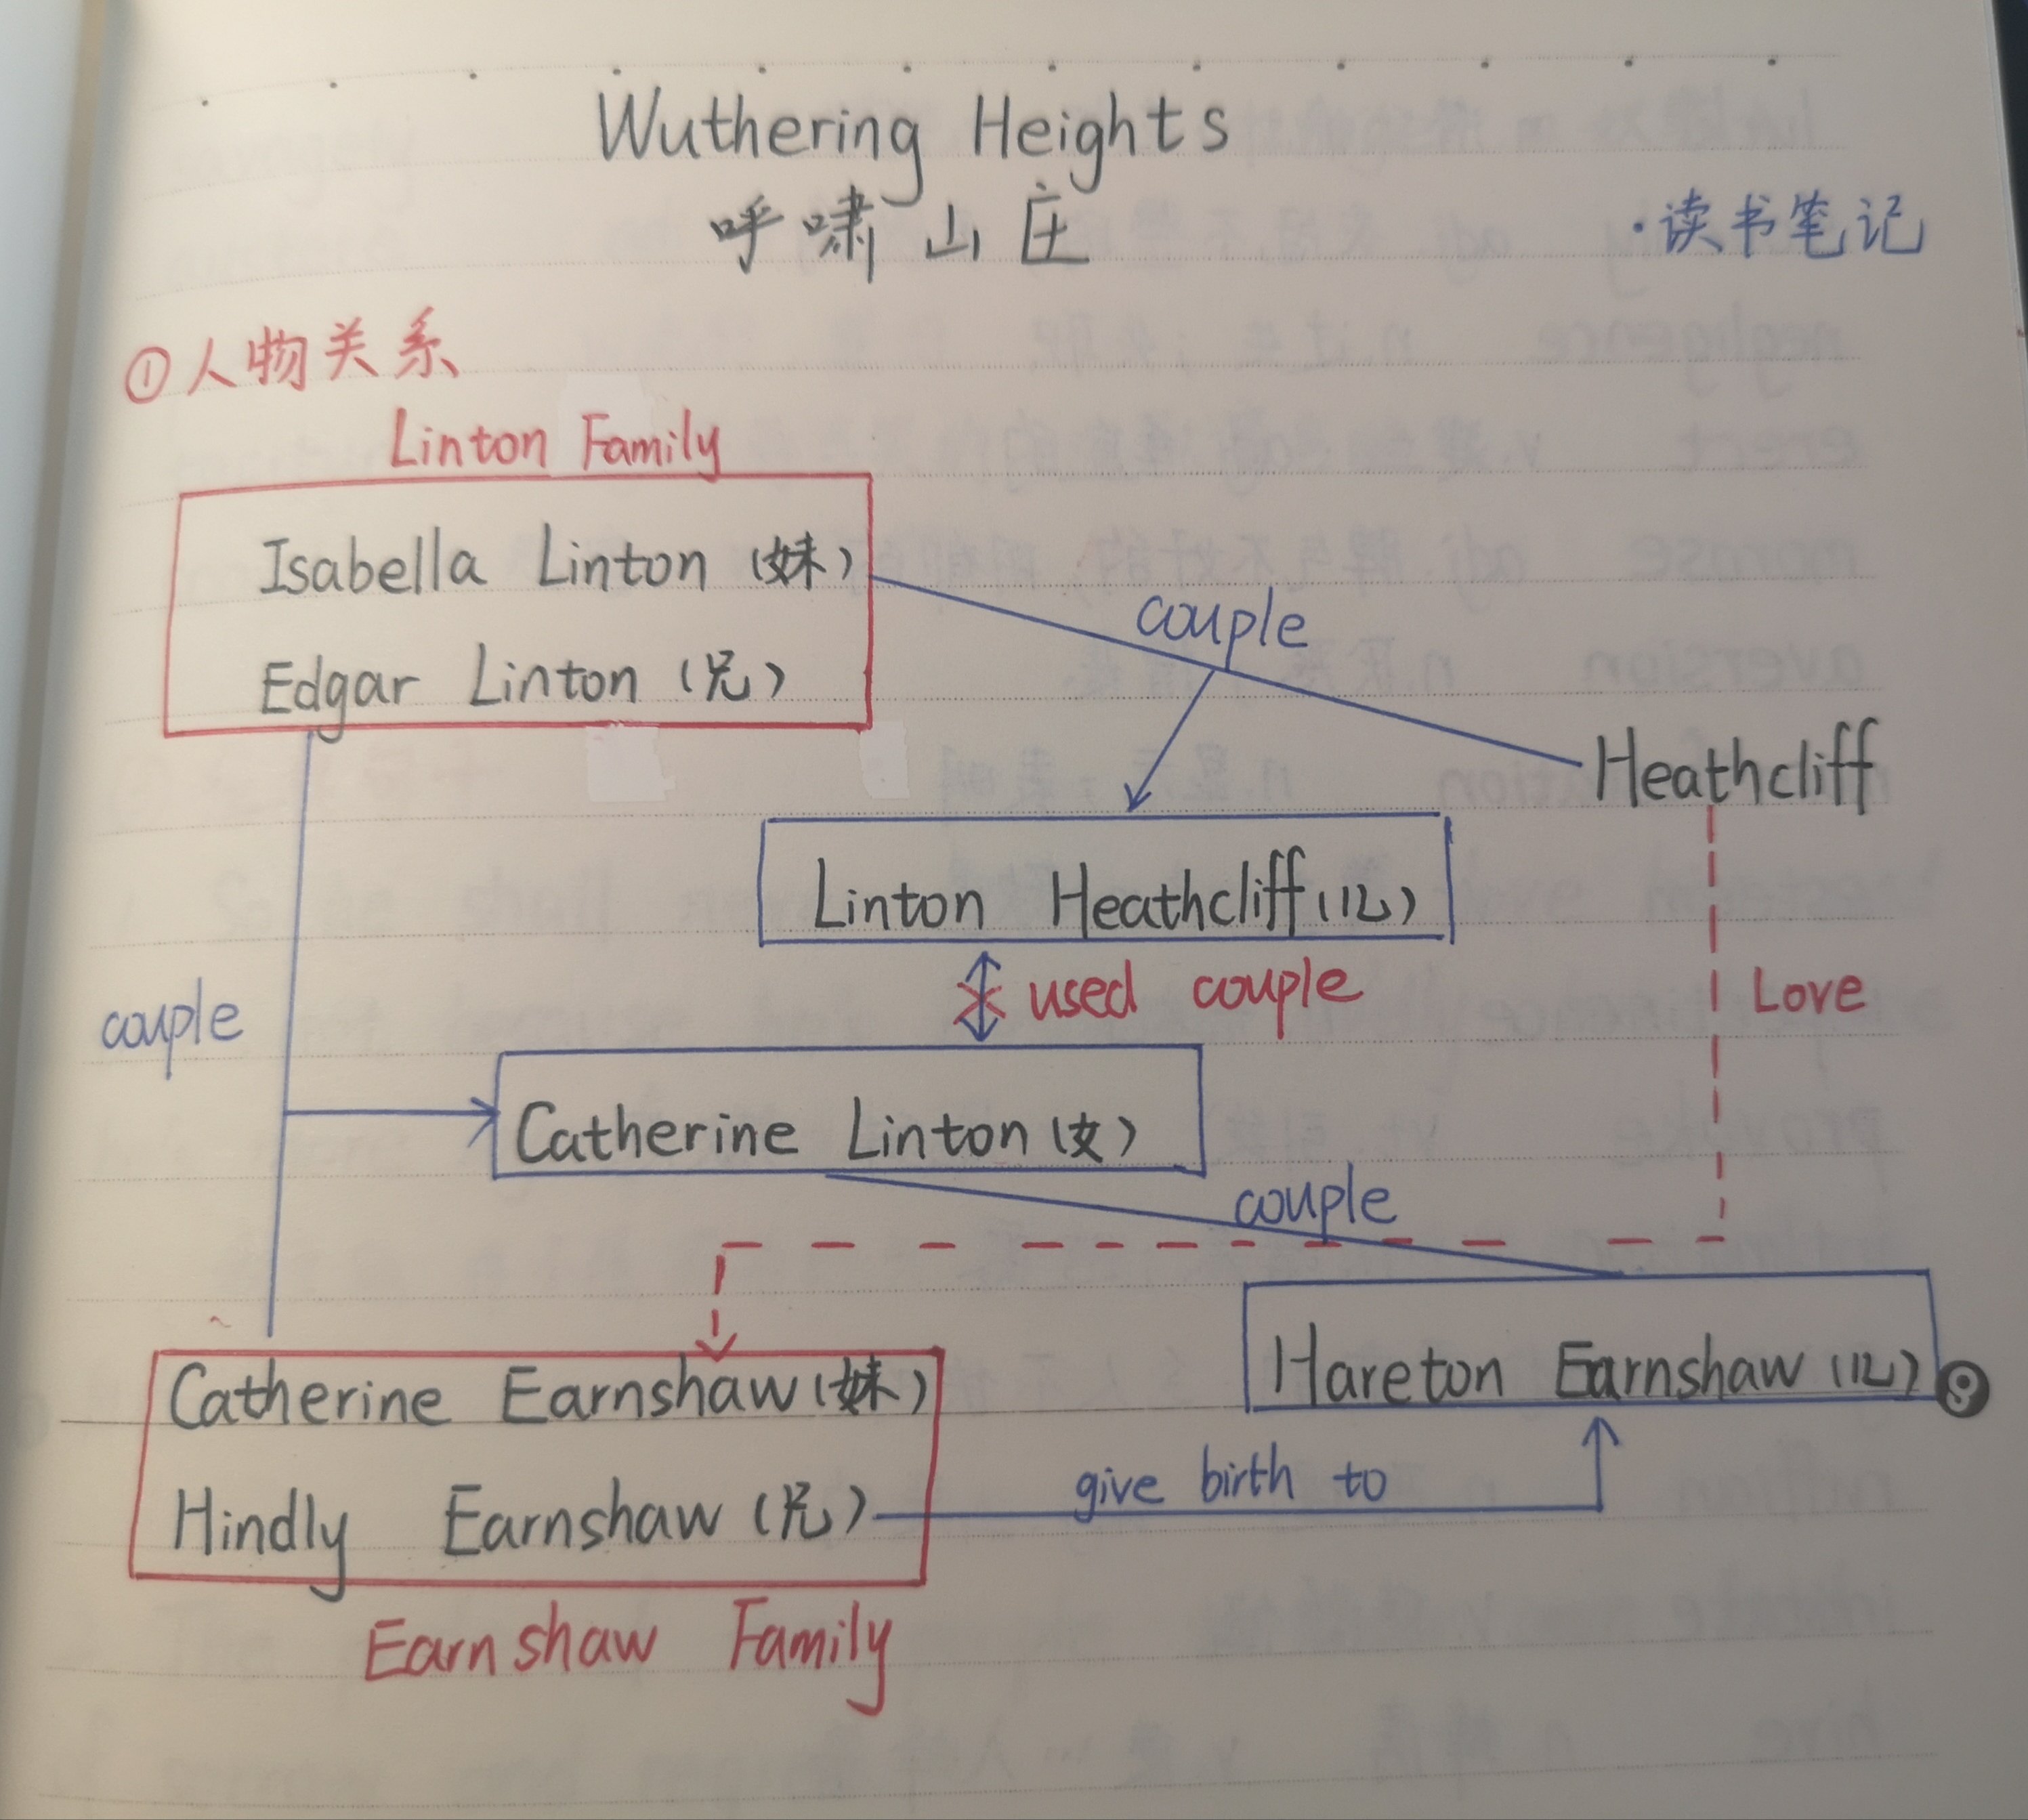 Wuthering Heights
呼啸山庄
·读书笔记
①人物关系
Linton Family
Isabella Linton（妹）
Edgar Linton（兄）
couple
Heathcliff
Linton Heathcliff（儿）
used couple
Love
couple
Catherine Linton（女）
couple
Catherine Earnshaw（妹）
Hareton Earnshaw（儿）
Hindly Earnshaw（兄）
give birth to
Earnshaw Family